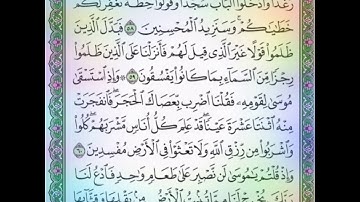 رَغَدًا وَادْخُلُوا الْبَابَ سُجَّدًا وَقُولُوا حِطَّةٌ نَّغْفِرْ لَكُمْ
خَطَايَاكُمْ وَسَنَزِيدُ الْمُحْسِنِينَ ٥٨ فَبَدَّلَ الَّذِينَ
ظَلَمُوا قَوْلًا غَيْرَ الَّذِي قِيلَ لَهُمْ فَأَنزَلْنَا عَلَى الَّذِينَ ظَلَمُوا
رِجْزًا مِّنَ السَّمَاءِ بِمَا كَانُوا يَفْسُقُونَ ٥٩ وَإِذِ اسْتَسْقَىٰ
مُوسَىٰ لِقَوْمِهِ فَقُلْنَا اضْرِب بِّعَصَاكَ الْحَجَرَ فَانفَجَرَتْ
مِنْهُ اثْنَتَا عَشْرَةَ عَيْنًا قَدْ عَلِمَ كُلُّ أُنَاسٍ مَّشْرَبَهُمْ كُلُوا
وَاشْرَبُوا مِن رِّزْقِ اللَّهِ وَلَا تَعْثَوْا فِي الْأَرْضِ مُفْسِدِينَ ٦٠
وَإِذْ قُلْتُمْ يَا مُوسَىٰ لَن نَّصْبِرَ عَلَىٰ طَعَامٍ وَاحِدٍ فَادْعُ لَنَا
رَبَّكَ يُخْرِجْ لَنَا مِمَّا تُنبِتُ الْأَرْضُ مِن بَقْلِهَا وَقِثَّائِهَا